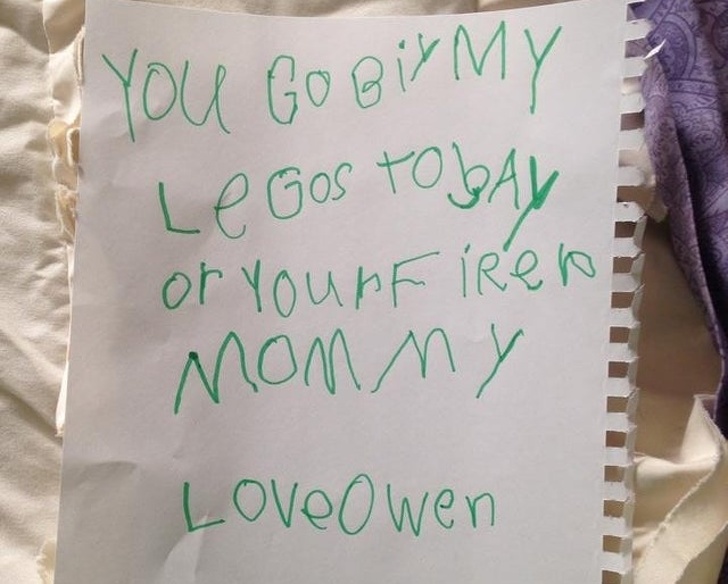 YOU GO BiY MY
LeGos TObAY
or YourF iReD
MOMMY
LOVe Owen